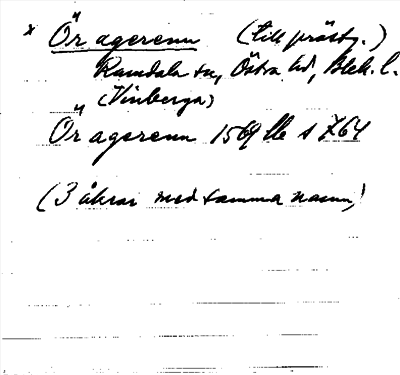 x Öragerenn (till prästg.)
Ramdala sn, Östra hd, Blek. l.
(Vinberga)
Öragerenn 1569 s 764
(3 åkrar med samma namn)